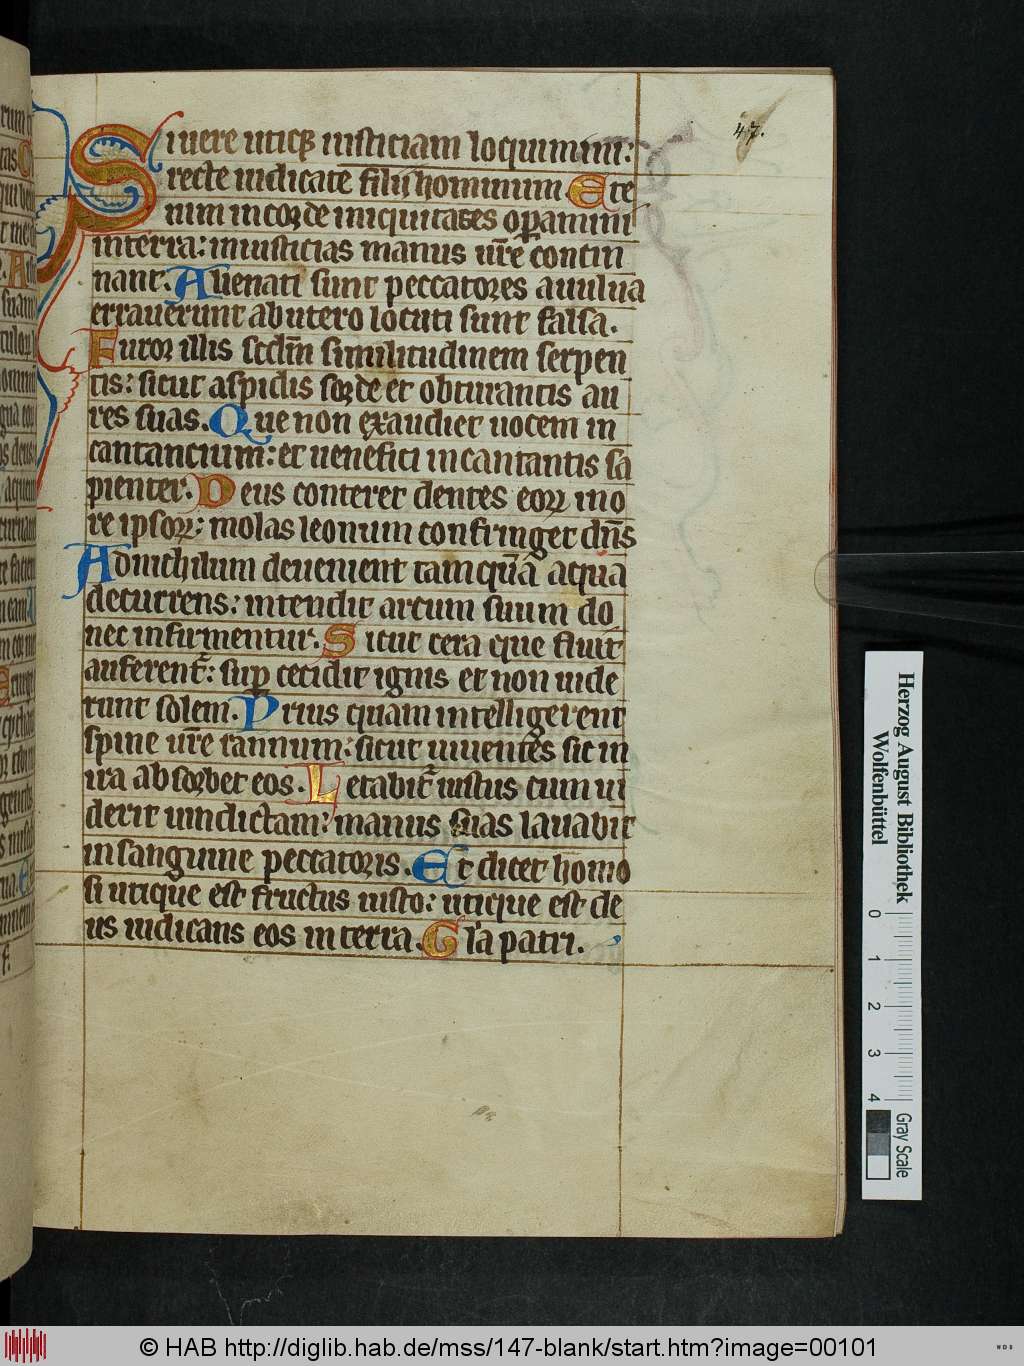 47.
Si uere utiq; iusticiam loquimini:
recte iudicate filii hominum Ete
nim in corde iniquitates opamini
in terra: iniusticias manus ur̄e contin
nant. Alienati sunt peccatores a uulua
errauerunt ab utero locuti sunt falsa.
Furor illis scdm̄ similitudinem serpen
tis: sicut aspidis sorde et obturantis au
res suas. Que non exaudiet uocem in
cantancium: et uenefici incantantis sa
pienter. Deus conteret dentes eoꝝ in o
re ipsoꝝ: molas leonum confringet dn̄s
Ad nichilum deuenient tamquā aqua
decurrens: intendit arcum suum do
nec infirmentur. Sicut cera que fluit
auferent᷑: sup cecidit ignis et non uide
runt solem. Prius quam intelligerent
spine ur̄e rannum: sicut uiuentes sic in
ira absorbet eos. Letabit᷑ iustus cum ui
derit uindictam: manus suas lauabit
in sanguine peccatoris. Et dicet homo
si utique est fructus iusto: utique est de
us iudicans eos in terra. Gl̄a patri.
Herzog August Bibliothek
Wolfenbüttel
0 1 2 3 4
Gray Scale
© HAB http://diglib.hab.de/mss/147-blank/start.htm?image=00101